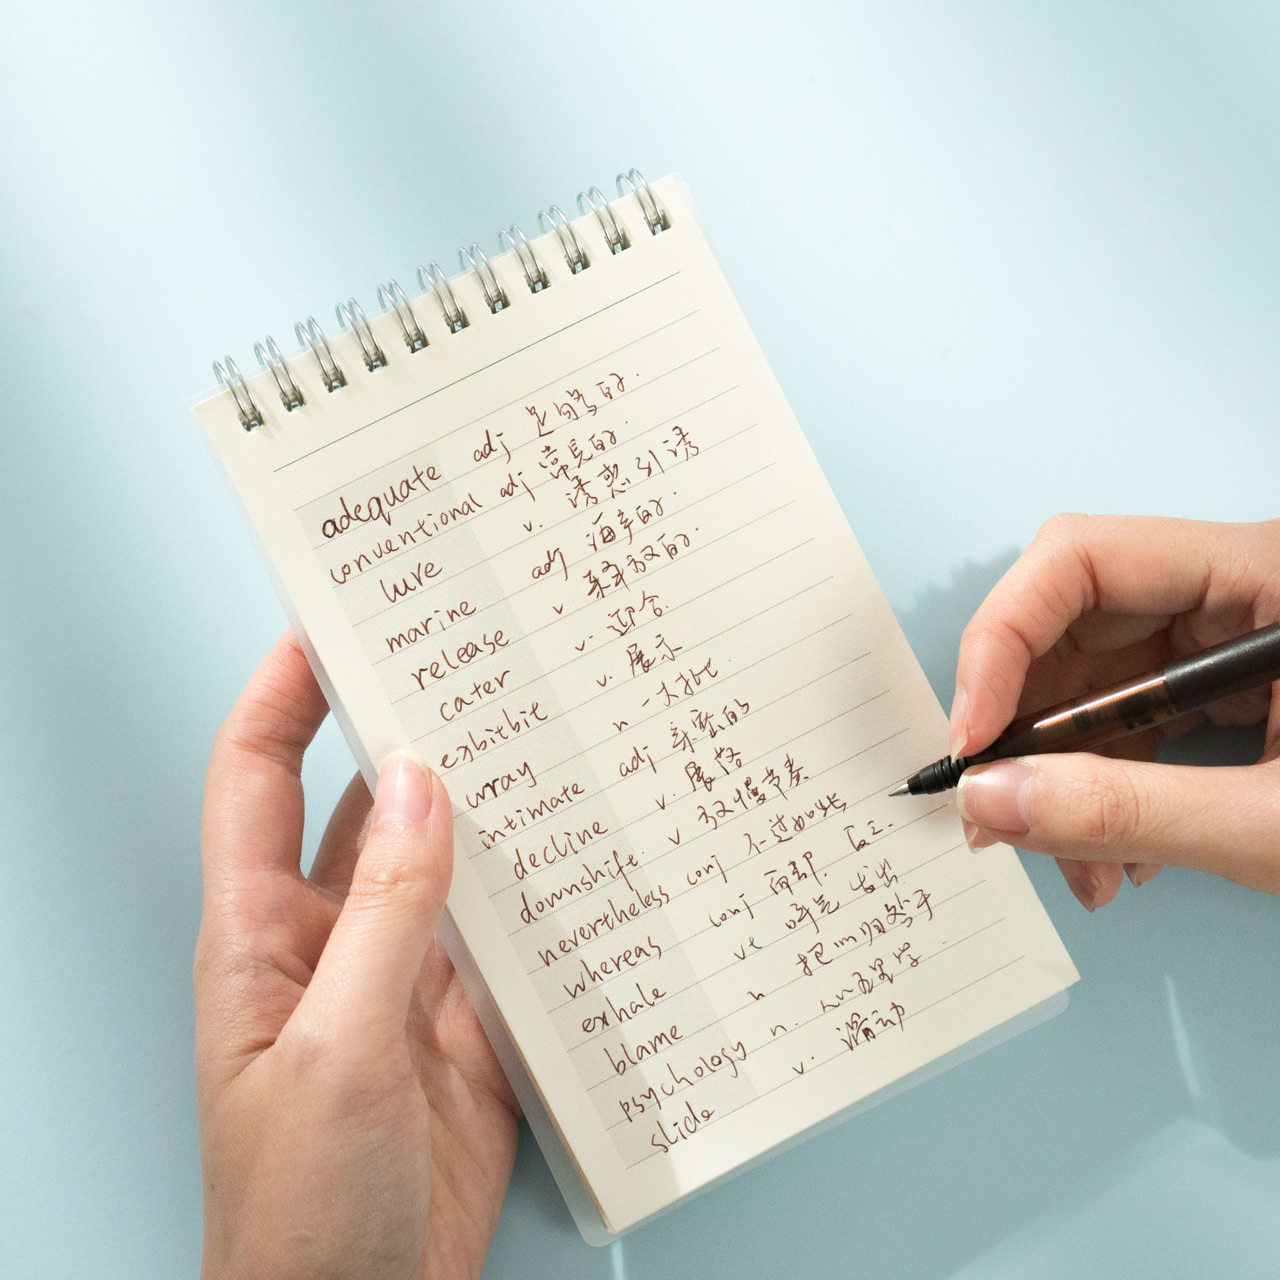 adequate adj 足够的.
conventional adj 常見的.
lure v. 诱惑 引诱
marine adj 海产的.
release v 释放的.
cater v. 迎合.
exbitbit v. 展示
wray n 一大批.
intimate adj 亲密的
decline v. 展落
downshift. v 放慢节奏
nevertheless conj 不过如此
whereas conj 而却.
exhale ve 呼气 发出
blame n 把 归处于
psychology n. 心理学.
slide v. 滑动